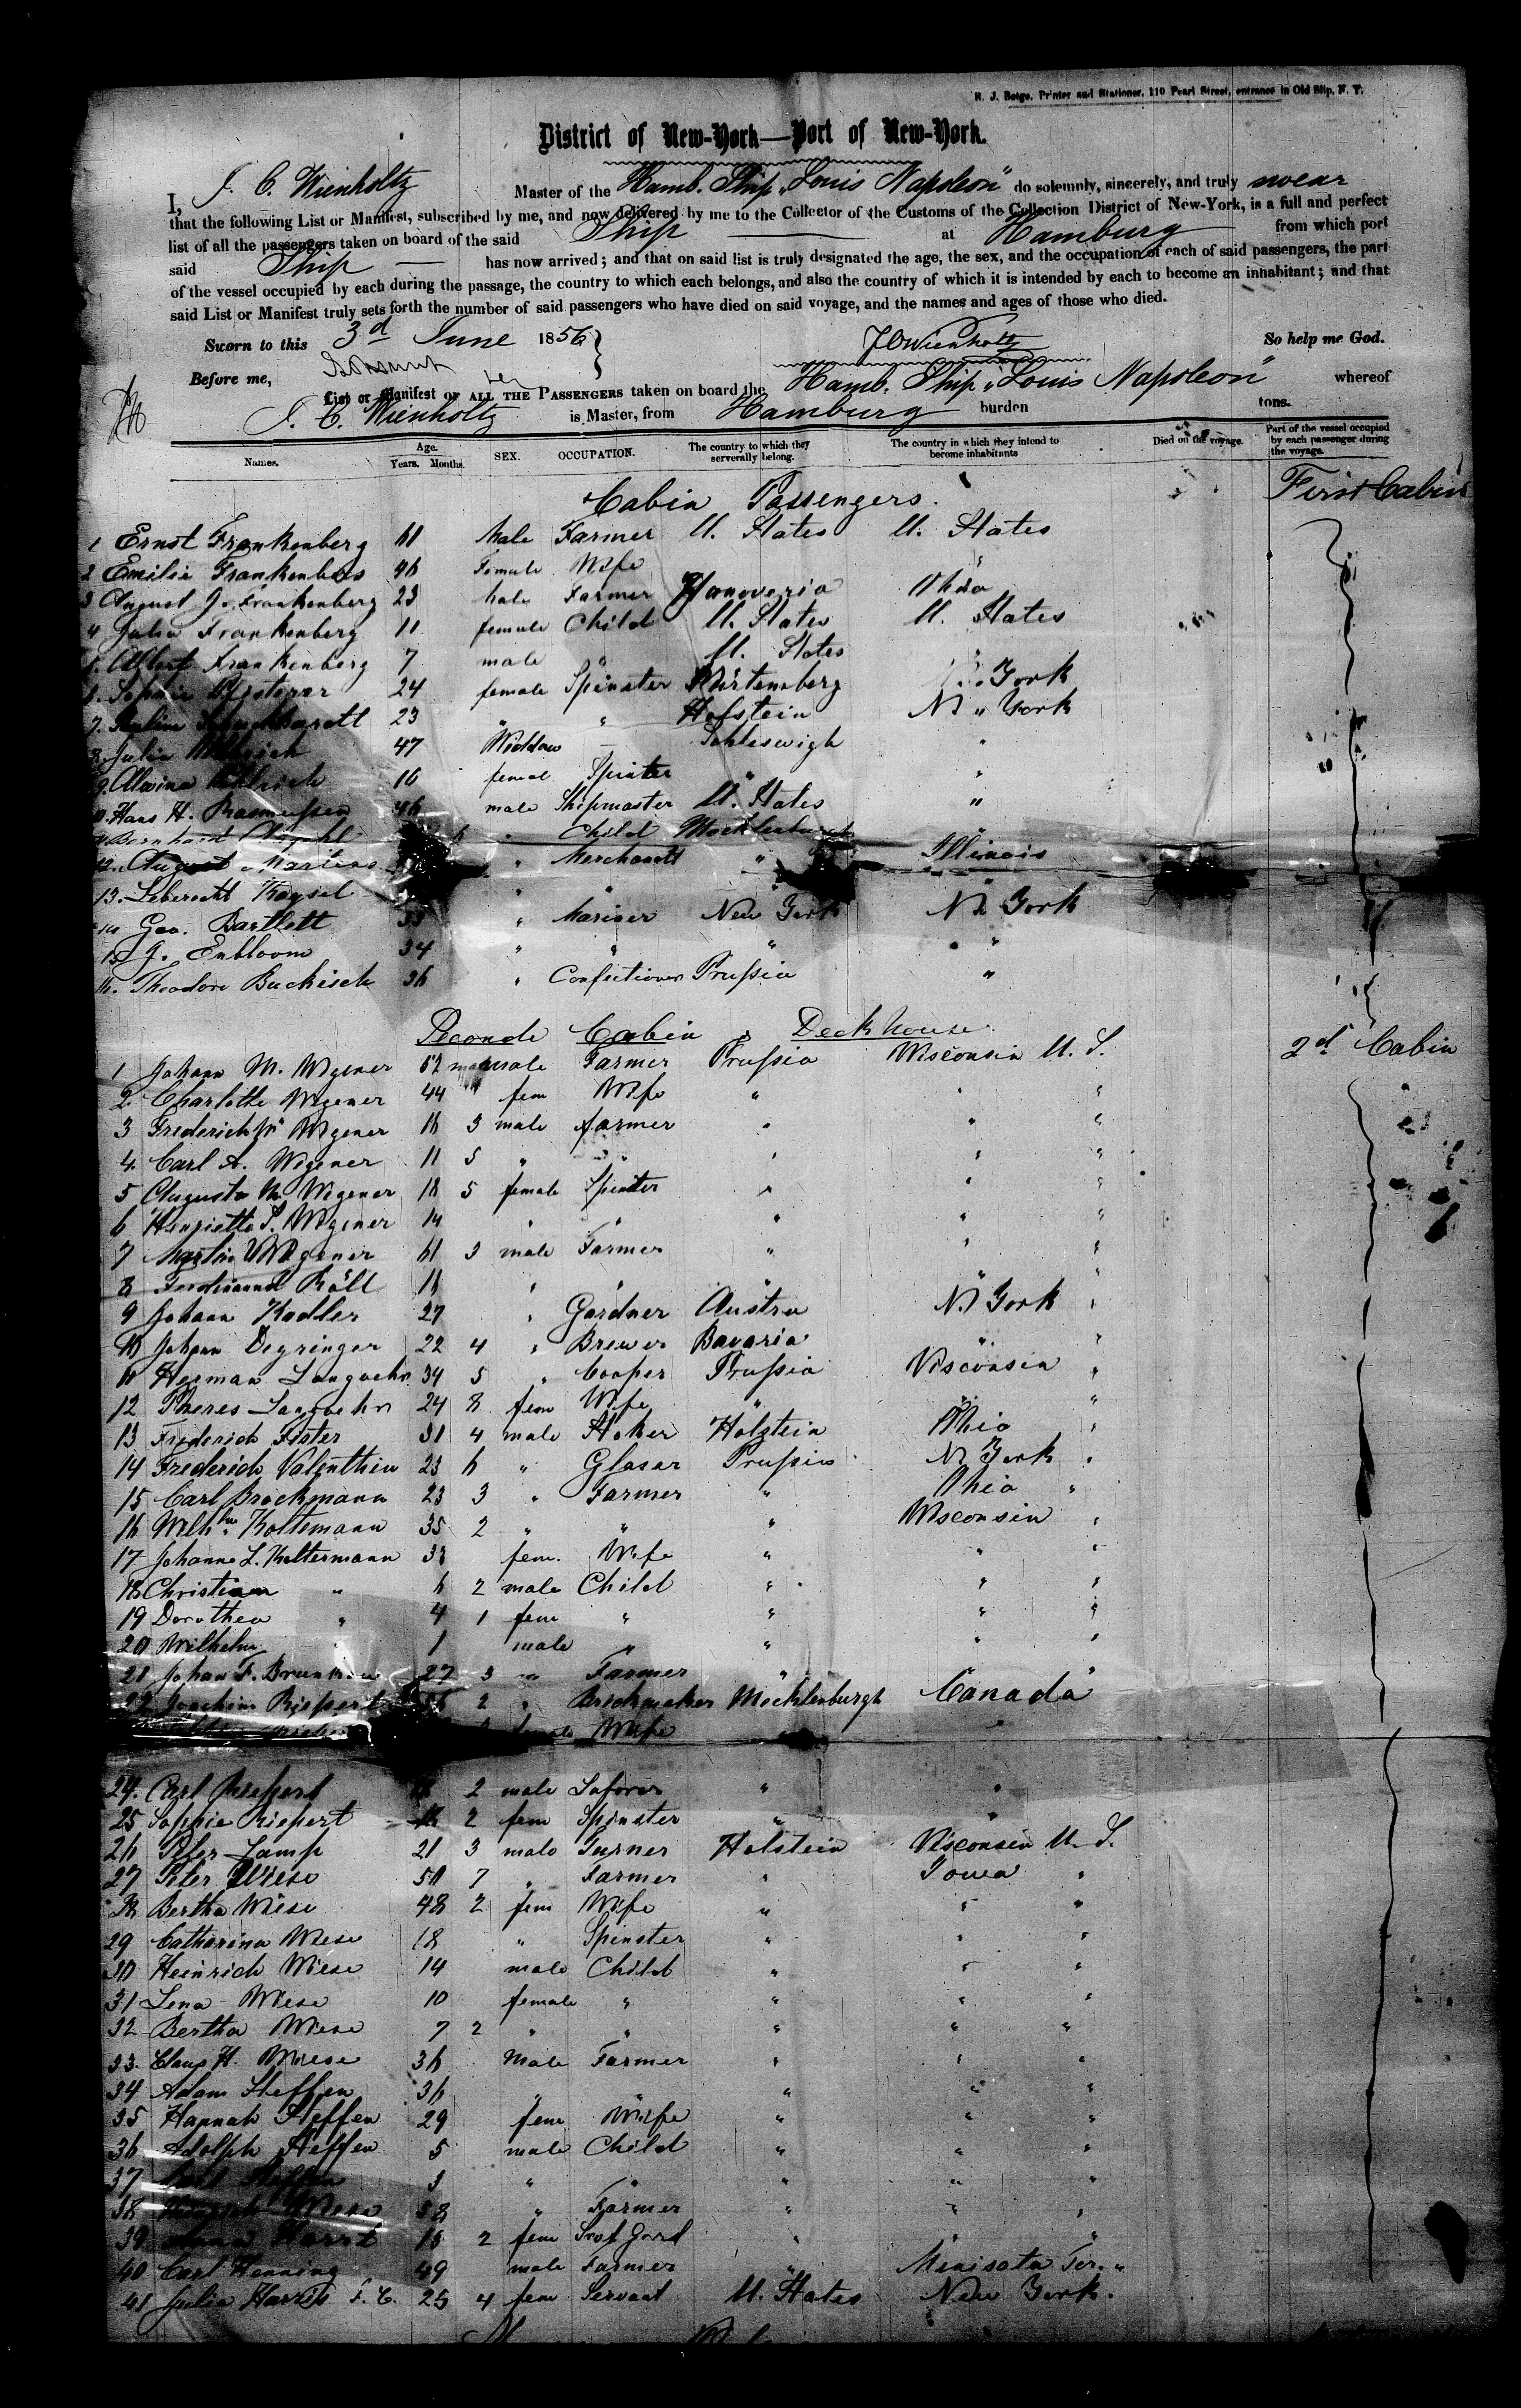 R. J. Betge, Printer and Stationer, 110 Pearl Street, entrance in Old Slip, N. Y.
District of New-York—Port of New-York.
I, J. C. Wienholtz Master of the Hamb. Ship „Louis Napoleon" do solemnly, sincerely, and truly swear
that the following List or Manifest, subscribed by me, and now delivered by me to the Collector of the Customs of the Collection District of New-York, is a full and perfect
list of all the passengers taken on board of the said Ship at Hamburg from which port
said Ship has now arrived; and that on said list is truly designated the age, the sex, and the occupation of each of said passengers, the part
of the vessel occupied by each during the passage, the country to which each belongs, and also the country of which it is intended by each to become an inhabitant; and that
said List or Manifest truly sets forth the number of said passengers who have died on said voyage, and the names and ages of those who died.
Sworn to this 3d June 1856 JCWienholtz So help me God.
Before me,
List or Manifest OF ALL THE PASSENGERS taken on board the Hamb. Ship „Louis Napoleon" whereof
J. C. Wienholtz is Master, from Hamburg burden tons.
Names. Age. Years. Months. SEX. OCCUPATION. The country to which they serverally belong. The country in which they intend to become inhabitants Died on the voyage. Part of the vessel occupied by each passenger during the voyage.
Cabin Passengers. First Cabin
1 Ernst Frankenberg 61 Male Farmer U. States U. States
2 Emilie Frankenberg 46 Female Wife
3 August J. Frankenberg 23 male Farmer Hanoveria Ohio
4 Julia Frankenberg 11 female Child U. States U. States
Frankenberg 7 male " U. States
Sophie 24 female Spinster Würtemberg York
7. 23 " " Holstein N. York
8. Julia 47 Widdow Schleswigh "
9. Alwina 16 femal Spinster " "
10. Hans H. Rasmussen 46 male Shipmaster U. States "
11. Bernhard Child Mecklenburgh
12. August Martens " Merchandt " Illinois
13. Leberecht Kaysel " " "
14 Geo. Bartlett " Mariner New York N. York
15 J. Enbloom 34 " " " "
16. Theodore Buckisch 36 " Confectioner Prussia "
Seconde Cabin & Deckhouse.
1 Johann M. Wegener 52 male Farmer Prussia Wisconsin U. S. 2d Cabin
2. Charlotte Wegener 44 " fem Wife " " "
3 Frederich Wegener 16 3 male farmer " " "
4. Carl A. Wegener 11 5 " " " " "
5 Augusta M. Wegener 18 5 female Spinster " " "
6 Henriette S. Wegener 14 " " " " "
7 Martin Wegener 61 3 male Farmer " " "
8 Ferdinannd Röll 16 " " " " "
9 Johann Kadler 27 " Gardner Austra N. York "
10 Johann Degringer 22 4 " Brewer Bavaria " "
11 Herman Langvehn 34 5 " Cooper Prussia Wisconsin "
12 Theres Langvehn 24 8 fem Wife " " "
13 Frederich Fister 31 4 male Holstein Ohio "
14 Frederich Valenthin 23 6 " Glaser Prussia N. York "
15 Carl Brockmann 23 3 " Farmer " Ohio "
16 Wilhm. Koltemann 35 2 " " " Wisconsin "
17 Johanne L. Koltermann 33 fem. Wife " " "
18 Christian " 6 2 male Child " " "
19 Dorothea " 4 1 fem " " " "
20 Wilhelm 1 male " " " "
21 Johan F. 27 3 " Farmer " " "
22 Joachim Riepert 2 " Brickmaker Mecklenburgh Canada
Wife "
24. Carl Riepert 2 male Laforer " "
25 Sophie Riepert 2 fem Spinster " "
26 Peter Lamp 21 3 male Turner Holstein Wisconsin U. S.
27 Peter Wiese 50 7 " Farmer " Iowa "
28 Bertha Wiese 48 2 fem Wife " " "
29 Catharina Wiese 18 " Spinster " " "
30 Heinrich Wiese 14 male Child " " "
31 Lena Wiese 10 female " " " "
32 Bertha Wiese 7 2 " " " " "
33. Claus H. Wiese 36 Male Farmer " " "
34 Adam Steffen 36 " " " " "
35 Hannah Steffen 29 fem Wife " " "
36 Adolph Steffen 5 male Child " " "
37 3 " " " " "
38 Wiese 58 " Farmer " " "
39 2 fem " "
40 Carl Henning 49 male Farmer " Minisota Ter. "
41 Julia Harris F. C. 25 4 fem Servant U. States New York.